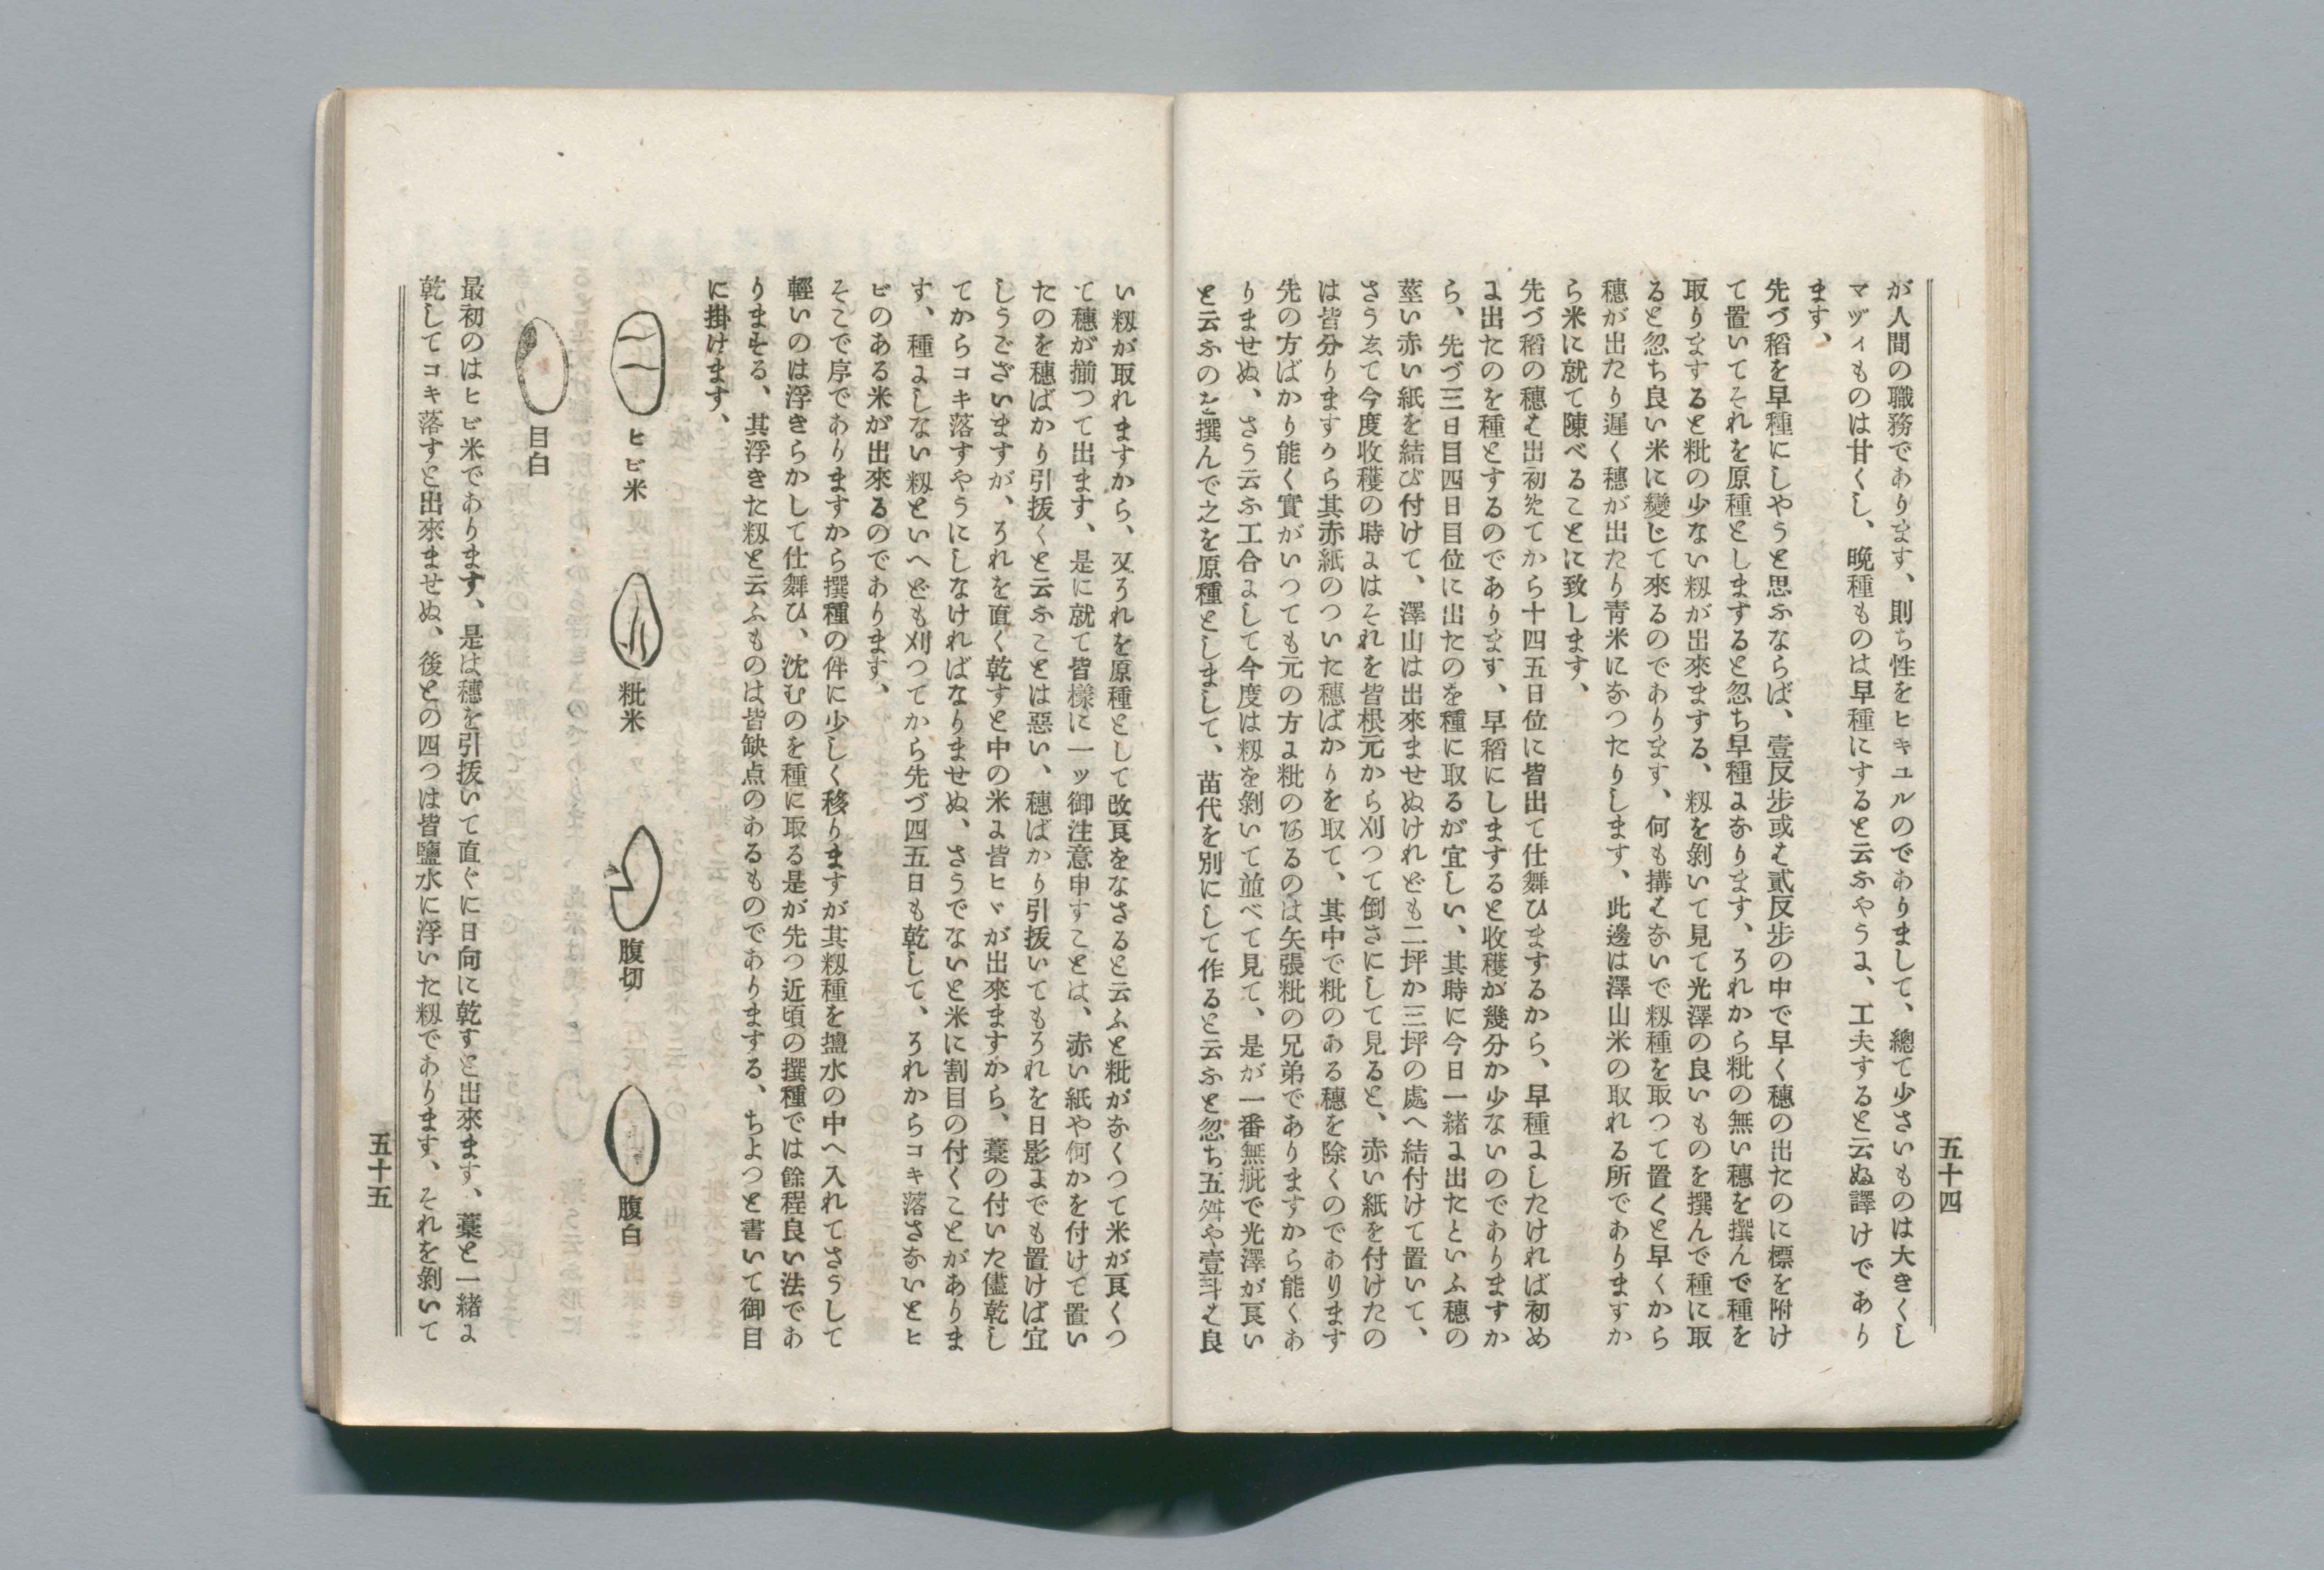 が人間の職務であります、則ち性をヒキユルのでありまして、總て少さいものは大きくし
マヅイものは甘くし、晩種ものは早種にすると云ふやうに、工夫すると云ぬ譯けであり
ます、
先づ稻を早種にしやうと思ふならば、壹反步或は貳反步の中で早く穗の出たのに標を附け
て置いてそれを原種としますると忽ち早種になります、それから粃の無い穗を撰んで種を
取りますると粃の少ない籾が出來まする、籾を剝いて見て光澤の良いものを撰んで種に取
ると忽ち良い米に變じて來るのであります、何も搆はないで籾種を取つて置くと早くから
穗が出たり遲く穗が出たり靑米になつたりします、此邊は澤山米の取れる所でありますか
ら米に就て陳べることに致します、
先づ稻の穗は出初めてから十四五日位に皆出て仕舞ひまするから、早種にしたければ初め
に出たのを種とするのであります、早稻にしますると收穫が幾分か少ないのでありますか
ら、先づ三日目四日目位に出たのを種に取るが宜しい、其時に今日一緖に出たといふ穗の
莖い赤い紙を結び付けて、澤山は出來ませぬけれども二坪か三坪の處へ結付けて置いて、
さうゑて今度收穫の時にはそれを皆根元から刈つて倒さにして見ると、赤い紙を付けたの
は皆分りますから其赤紙のついた穗ばかりを取て、其中で粃のある穗を除くのであります
先の方ばかり能く實がいつても元の方に粃のあるのは矢張粃の兄弟でありますから能くあ
りませぬ、さう云ふ工合にして今度は籾を剝いて並べて見て、是が一番無疵で光澤が良い
と云ふのを撰んで之を原種としまして、苗代を別にして作ると云ふと忽ち五舛や壹斗は良
五十四
い籾が取れますから、又それを原種として改良をなさると云ふと粃がなくつて米が良くつ
て穗が揃つて出ます、是に就て皆樣に一ッ御注意申すことは、赤い紙や何かを付けて置い
たのを穗ばかり引拔くと云ふことは惡い、穗ばかり引拔いてもそれを日影までも置けば宜
しうございますが、それを直く乾すと中の米に皆ヒヾが出來ますから、藁の付いた儘乾し
てからコキ落すやうにしなければなりませぬ、さうでないと米に割目の付くことがありま
す、種にしない籾といへども刈つてから先づ四五日も乾して、それからコキ落さないとヒ
ビのある米が出來るのであります、
そこで序でありますから撰種の件に少しく移りますが其籾種を塩水の中へ入れてさうして
輕いのは浮きらかして仕舞ひ、沈むのを種に取る是が先つ近頃の撰種では餘程良い法であ
りまする、其浮きた籾と云ふものは皆缺点のあるものでありまする、ちよつと書いて御目
に掛けます、
ヒビ米
粃米
腹切
腹白
目白
最初のはヒビ米であります、是は穗を引拔いて直ぐに日向に乾すと出來ます、藁と一緖に
乾してコキ落すと出來ませぬ、後との四つは皆鹽水に浮いた籾であります、それを剝いて
五十五